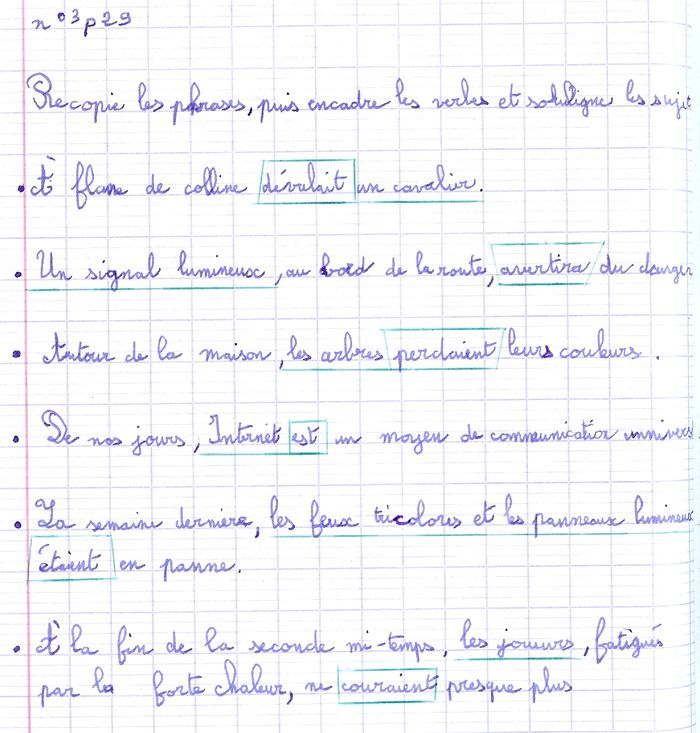 n°3 p 29
Recopie les phrases, puis encadre les verbes et souligne les sujet
• À flanc de colline dévalait un cavalier.
• Un signal lumineux, au bord de la route, avertira du danger
• Autour de la maison, les arbres perdaient leurs couleurs.
• De nos jours, Internet est un moyen de communication univers
• La semaine dernière, les feux tricolores et les panneaux lumineux
étaient en panne.
• À la fin de la seconde mi-temps, les joueurs, fatigués
par la forte chaleur, ne couraient presque plus